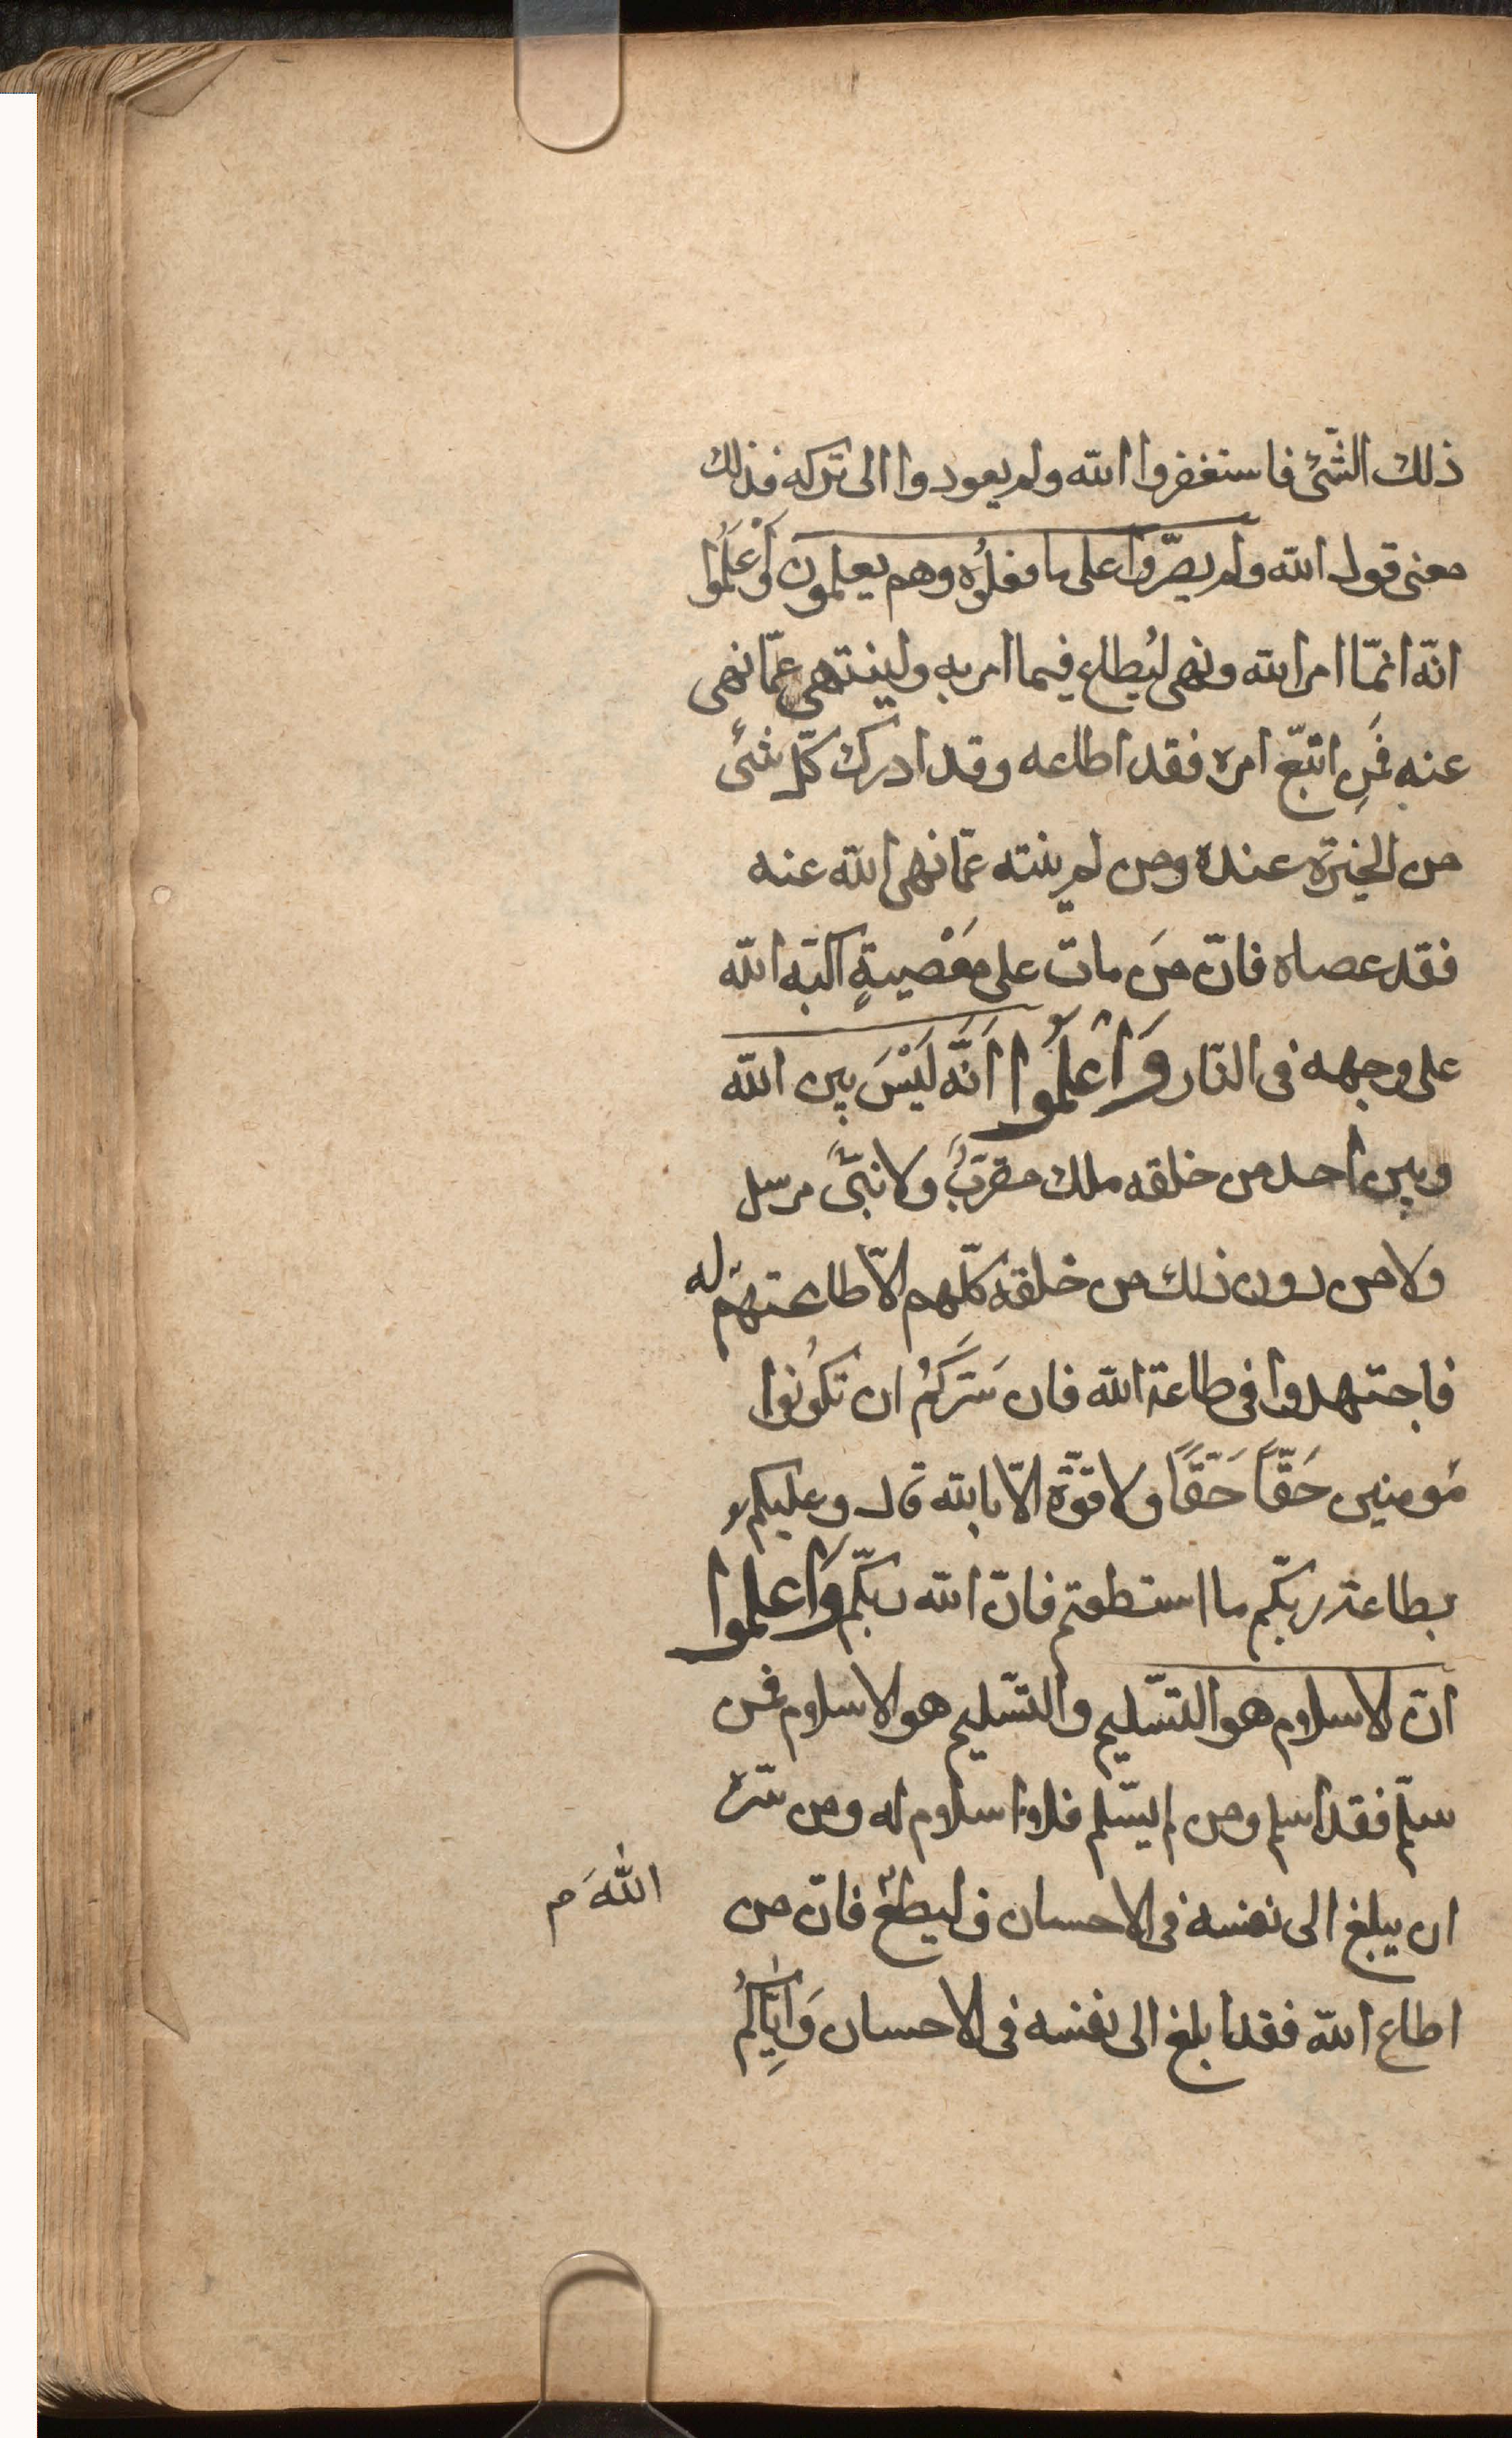 ذلك الشّئ فاستغفروا الله ولم يعودوا الى تركه فذلك
معنى قول الله ولم يصرّوا على ما فعلُوه وهم يعلمون وَاْعلَمُوا
انّه انمّا امر الله ونهى ليُطاع فيما امر به ولينتهى عمّا نهى
عنه فمَنِ اتّبع امره فقد اطاعه وقد ادرك كلّ شئ
من الخير عنده ومن لم ينته عمّا نهى الله عنه
فقد عصاه فانّ مَن مات على مَعْصيةٍ اكبّه الله
على وجهه فى النّار وَاعلَمُوا اَنَّه لَيْسَ بين الله
وبين احد من خلقه ملك مقرّبٌ ولا نبّى مرسل
ولا من دون ذلك من خلقه كلّهم الّا طاعتهم له
فاجتهدوا فى طاعة الله فان سَرّكُم ان تكُونُوا
مؤمنين حَقّاً حَقّاً ولا قوّة الّا بالله قال وعليكم
بطاعة ربّكم ما استطعتم فانّ الله ربّكم وَاعلموا
انّ الاسلام هو التّسليم والتّسليم هو الاسلام فمن
سلّم فقد اسلم ومن لم يسّلم فلا اسلام له ومن سّره
ان يبلغ الى نفسه فى الاحسان فليطع فانّ من
اللهَ م
اطاع الله فقد ابلغ الى نفسه فى الاحسان وَاِيّاكُم